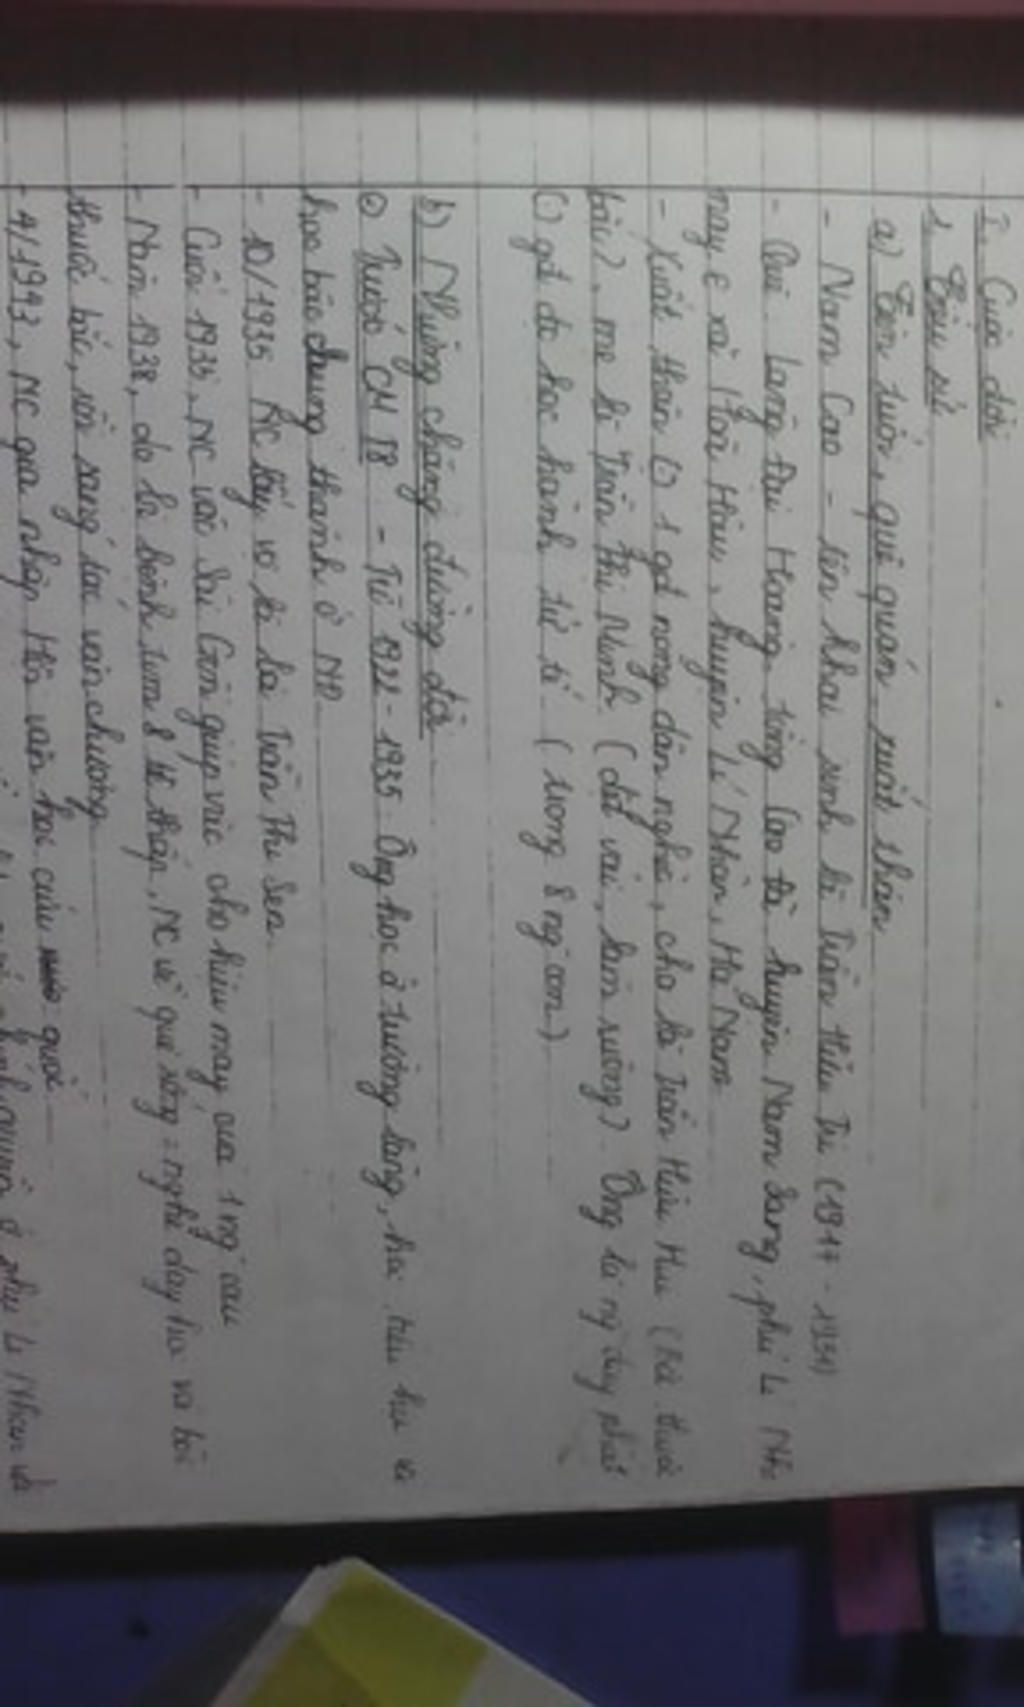 I. Cuộc đời
1. Tiểu sử
a) Tên tuổi, quê quán, xuất thân
- Nam Cao - tên khai sinh là Trần Hữu Tri (1917 - 1951)
- Quê. Làng Đại Hoàng tổng Cao Đà huyện Nam Sang, phủ Lí Nh
nay ∈ xã Hoà Hậu, huyện Lí Nhân, Hà Nam
- Xuất thân (-) 1 gđ nông dân nghèo, cha là Trần Hữu Huệ (thuốc
bắc), mẹ là Trần Thị Minh (dệt vải, làm ruộng). Ông là ng duy nhất
(-) gđ đc học hành tử tế (trong 8 ng con)
b) Những chặng đường đời
Trước CM T8 - Từ 1922 - 1935. Ông học ở trường làng, học tiểu học và
học bậc chung thành ở NĐ
- 10/1935 NC lấy vợ là bà Trần Thị Sen.
- Cuối 1935, NC vào Sài Gòn giúp việc cho hiệu may của 1 ng cậu
- Năm 1938, do bị bệnh tim & tê thấp, NC về quê sống = nghề dạy học và bốc
thuốc bắc, rồi sáng tác văn chương
- 4/1943, NC gia nhập Hội văn hoá cứu quốc.
ở phủ Lí Nhân và